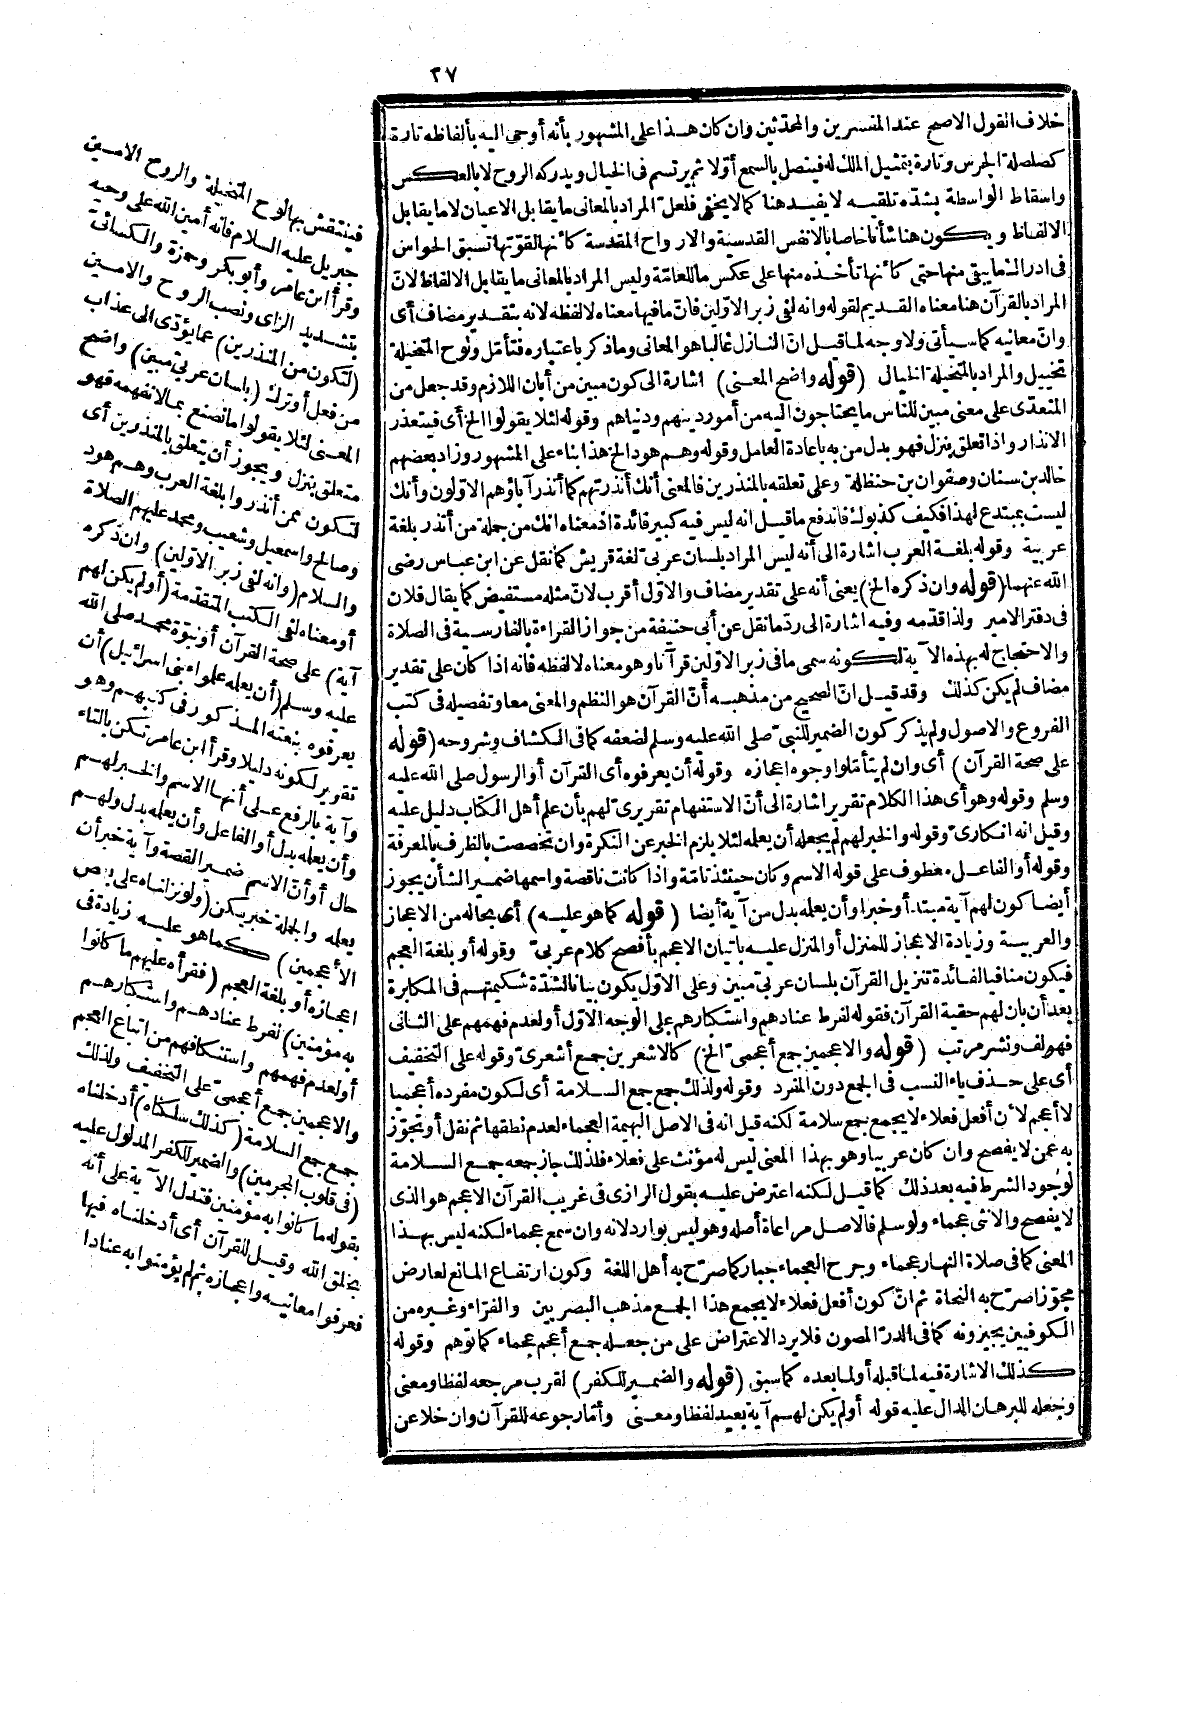 ٢٧
خلاف القول الاصح عند المفسرين والمحدثين وان كان هذا على المشهور بأنه أوحى اليه بألفاظه تارة
كصلصلة الجرس وتارة بتمثيل الملك له فيتصل بالسمع أولا ثم يرتسم فى الخيال ويدركه الروح لا بالعكس
واسقاط الواسطة بشدة تلقيه لا يفيد هنا كما لا يخفى فلعل المراد بالمعانى ما يقابل الاعيان لا ما يقابل
الالفاظ ويكون هنا شأنا خاصا بالانفس القدسية والارواح المقدسة كأنها لقوتها تسبق الحواس
فى ادراك ما يبقى منها حتى كأنها تأخذه منها على عكس ما للعامّة وليس المراد بالمعانى ما يقابل الالفاظ لانّ
المراد بالقرآن هنا معناه القديم لقوله وانه لفى زبر الاوّلين فانّ ما فيها معناه لا لفظه لانه بتقدير مضاف أى
وانّ معانيه كما سيأتى ولا وجه لما قيل انّ النازل غالبا هو المعانى وما ذكر باعتباره فتأمّل ولوح المتخيلة
تخييل والمراد بالمتخيلة الخيالى (قوله واضح المعنى) اشارة الى كون مبين من أبان اللازم وقد جعل من
المتعدّى على معنى مبين للناس ما يحتاجون اليه من أمور دينهم ودنياهم وقوله لئلا يقولوا الخ أى فيتعذر
الانذار واذا تعلق بنزل فهو بدل من به باعادة العامل وقوله وهم هود الخ هذا بناء على المشهور وزاد بعضهم
خالد بن سنان وصفوان بن حنظلة وعلى تعلقه بالمنذرين فالمعنى أنك أنذرتهم كما أنذر آباؤهم الاولون وأنك
ليست بمبتدع لهذا فكيف كذبوك فاندفع ما قيل انه ليس فيه كبير فائدة اذ معناه انك من جملة من أنذر بلغة
عربية وقوله بلغة العرب اشارة الى أنه ليس المراد بلسان عربىّ لغة قريش كما نقل عن ابن عباس رضى
الله عنهما (قوله وان ذكره الخ) يعنى أنه على تقدير مضاف والاوّل أقرب لانّ مثله مستفيض كما يقال فلان
فى دفتر الامير ولذا قدّمه وفيه اشارة الى ردّ ما نقل عن أبى حنيفة من جواز القراءة بالفارسية فى الصلاة
والاحتجاج له بهذه الآية لكونه سمى ما فى زبر الاوّلين قرآنا وهو معناه لا لفظه فانه اذا كان على تقدير
مضاف لم يكن كذلك وقد قيل انّ الصحيح من مذهبه أنّ القرآن هو النظم والمعنى معا وتفصيله فى كتب
الفروع والاصول ولم يذكر كون الضمير للنبىّ صلى الله عليه وسلم لضعفه كما فى الكشاف وشروحه (قوله
على صحة القرآن) أى وان لم يتأمّلوا وجوه اعجازه وقوله أن يعرفوه أى القرآن أو الرسول صلى الله عليه
وسلم وقوله وهو أى هذا الكلام تقرير اشارة الى أنّ الاستفهام تقريرىّ لهم بأن علم أهل الكتاب دليل عليه
وقيل انه انكارىّ وقوله والخبر لهم لم يجعله أن يعلمه لئلا يلزم الخبر عن النكرة وان تخصصت بالظرف بالمعرفة
وقوله أو الفاعل معطوف على قوله الاسم وكان حينئذ تامّة واذا كانت ناقصة واسمها ضمير الشأن يجوز
أيضا كون لهم آية مبتدأ وخبرا وأن يعلمه بدل من آية أيضا (قوله كما هو عليه) أى بحاله من الاعجاز
والعربية وزيادة الاعجاز للمنزل أو المنزل عليه باتيان الاعجم بأفصح كلام عربىّ وقوله أو بلغة العجم
فيكون منافيا لفائدة تنزيل القرآن بلسان عربىّ مبين وعلى الاوّل يكون بيانا لشدّة شكيمتهم فى المكابرة
بعد أن بان لهم حقية القرآن فقوله لفرط عنادهم واستكبارهم على الوجه الاوّل أو لعدم فهمهم على الثانى
فهو لف ونشر مرتب (قوله والاعجمين جمع أعجمىّ الخ) كالاشعرين جمع أشعرىّ وقوله على التخفيف
أى على حذف ياء النسب فى الجمع دون المفرد وقوله ولذلك جمع جمع السلامة أى لكون مفرده أعجميا
لا أعجم لأن أفعل فعلاء لا يجمع جمع سلامة لكنه قيل انه فى الاصل البهيمة العجماء لعدم نطقها ثم نقل أو تجوّز
به عمن لا يفصح وان كان عربيا وهو بهذا المعنى ليس له مؤنث على فعلاء فلذلك جاز جمعه جمع السلامة
لوجود الشرط فيه بعد ذلك كما قيل لكنه اعترض عليه بقول الرازى فى غريب القرآن الاعجم هو الذى
لا يفصح والانثى عجماء ولو سلم فالاصل مراعاة أصله وهو ليس بوارد لانه وان سمع عجماء لكنه ليس بهذا
المعنى كما فى صلاة النهار عجماء وجرح العجماء جبار كما صرّح به أهل اللغة وكون ارتفاع المانع لعارض
مجوّزا صرّح به النحاة ثم انّ كون أفعل فعلاء لا يجمع هذا الجمع مذهب البصريين والفرّاء وغيره من
الكوفيين يجيزونه كما فى الدرّ المصون فلا يرد الاعتراض على من جعله جمع أعجم عجماء كما توهم وقوله
كذلك الاشارة فيه لما قبله أو لما بعده كما سبق (قوله والضمير للكفر) لقرب مرجعه لفظا ومعنى
وجعله للبرهان الدال عليه قوله أولم يكن لهم آية بعيد لفظا ومعنى وأمّا رجوعه للقرآن وان خلا عن
فينتقش بها لوح المتخيلة والروح الامين
جبريل عليه السلام فانه أمين الله على وحيه
وقرأ ابن عامر وأبو بكر وحمزة والكسائىّ
بتشديد الزاى ونصب الروح والامين
(لتكون من المنذرين) عما يؤدّى الى عذاب
من فعل أو ترك (بلسان عربىّ مبين) واضح
المعنى لئلا يقولوا ما نصنع بما لا نفهمه فهو
متعلق بنزل ويجوز أن يتعلق بالمنذرين أى
لتكون ممن أنذروا بلغة العرب وهم هود
وصالح واسمعيل وشعيب ومحمد عليهم الصلاة
والسلام (وانه لفى زبر الاوّلين) وان ذكره
أو معناه لفى الكتب المتقدّمة (أولم يكن لهم
آية) على صحة القرآن أو نبوّة محمد صلى الله
عليه وسلم (أن يعلمه علماء بنى اسرائيل) أن
يعرفوه بنعته المذكور فى كتبهم وهو
تقرير لكونه دليلا وقرأ ابن عامر تكن بالتاء
وآية بالرفع على أنها الاسم والخبر لهم
وأن يعلمه بدل أو الفاعل وأن يعلمه بدل ولهم
حال أو أنّ الاسم ضمير القصة وآية خبر أن
يعلمه والجملة خبر يكن (ولو نزلناه على بعض
الأعجمين) كما هو عليه زيادة فى
اعجازه أو بلغة العجم (فقرأه عليهم ما كانوا
به مؤمنين) لفرط عنادهم واستكبارهم
أو لعدم فهمهم واستنكافهم من اتباع العجم
والاعجمين جمع أعجمىّ على التخفيف ولذلك
جمع جمع السلامة (كذلك سلكناه) أدخلناه
(فى قلوب المجرمين) والضمير للكفر المدلول عليه
بقوله ما كانوا به مؤمنين فتدل الآية على أنه
بخلق الله وقيل للقرآن أى أدخلناه فيها
فعرفوا معانيه واعجازه ثم لم يؤمنوا به عنادا